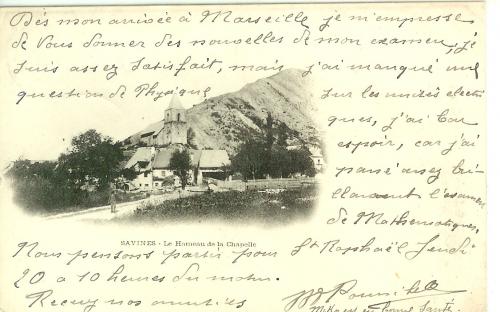 Dès mon arrivée à Marseille je m'empresse
de vous donner des nouvelles de mon examen, je
suis assez satisfait, mais j'ai manqué une
question de Physique sur les unités électri
ques, j'ai bon
espoir, car j'ai
passé assez bri-
llamment l'examen
de Mathématiques,
SAVINES - Le Hameau de la Chapelle
Nous pensons partir pour St Raphaël Jeudi
20 à 10 heures du matin.
Recevez nos amitiés
en bonne Santé.